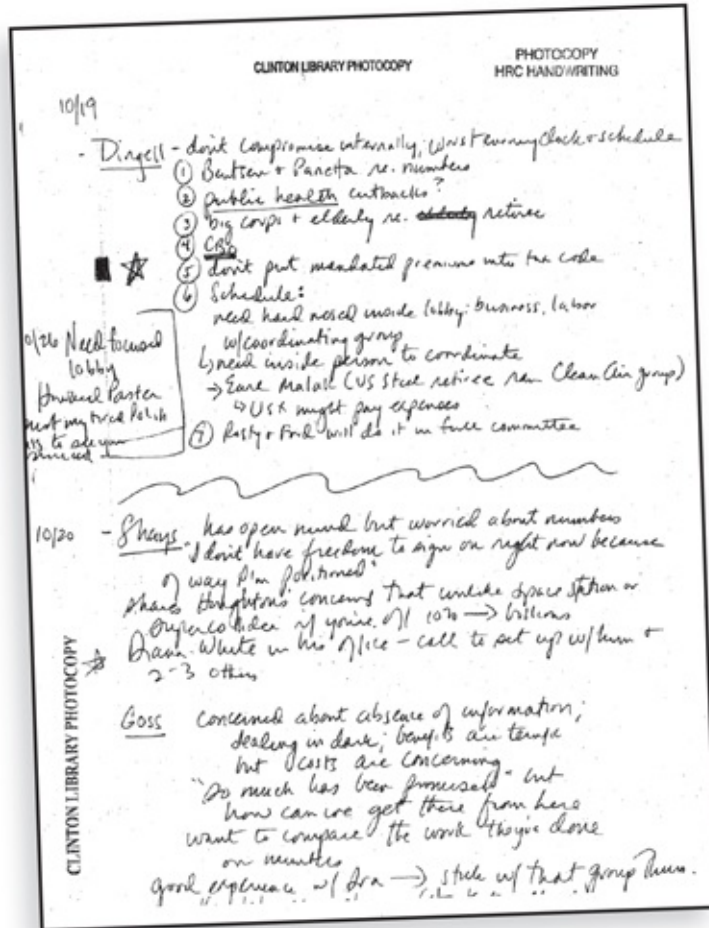 CLINTON LIBRARY PHOTOCOPY
PHOTOCOPY
HRC HANDWRITING
10/19
- Dingell - don't compromise internally; worst enemy clock + schedule
① Bentsen + Panetta re. numbers
② public health cutbacks?
③ big corps + elderly re. retiree
④ CBO
⑤ don't put mandated premiums into tax code
⑥ Schedule:
need hard nosed inside lobby: business, labor
w/coordinating group
↳ need inside person to coordinate
→ Earl Mallak (US Steel retiree ran Clean Air group)
↳ USX might pay expenses
⑦ Rosty + Ford will do it in full committee
0/26 Need focused
lobby
Howard Paster
not my tired Polish
ass to see you
10/20 - Shays has open mind but worried about numbers
"I don't have freedom to sign on right now because
of way I'm positioned"
shares Houghton's concerns that unlike space station or
supercollider if you're off 10% → billions
Diana White in his office - call to set up w/him +
2-3 others
Goss concerned about absence of information;
dealing in dark; benefits are
but costs are concerning
"So much has been promised" but
how can we get there from here
want to compare the work they've done
on numbers
good experience w/ Ira → stick w/ that group
CLINTON LIBRARY PHOTOCOPY